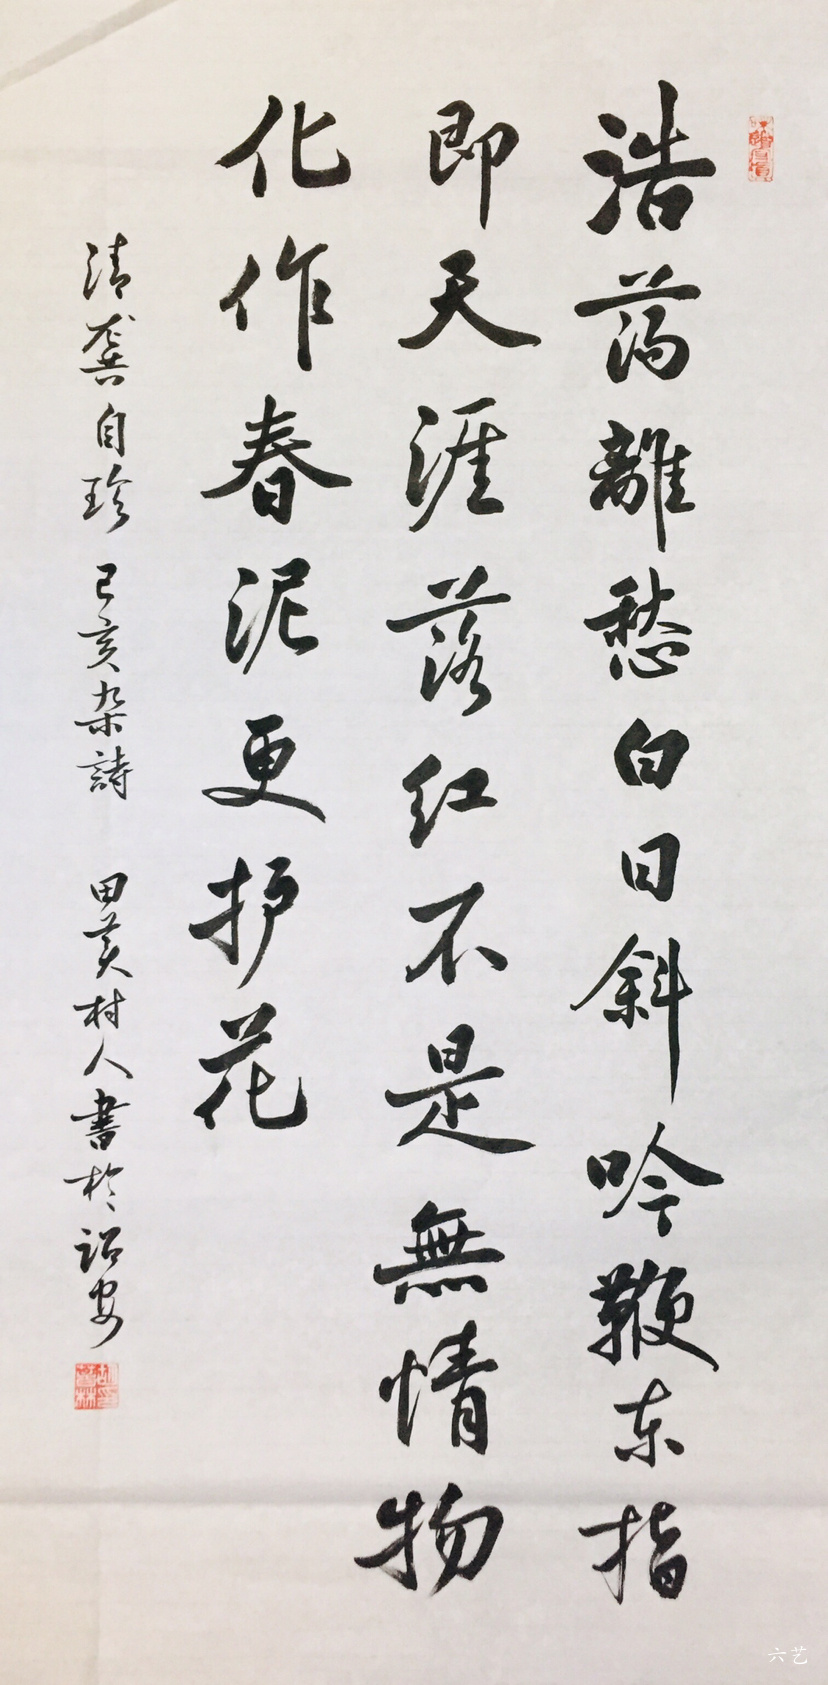 浩荡離愁白日斜吟鞭东指
即天涯落红不是無情物
化作春泥更护花
清龚自珍 己亥杂詩 田黄村人書於诏安
六艺